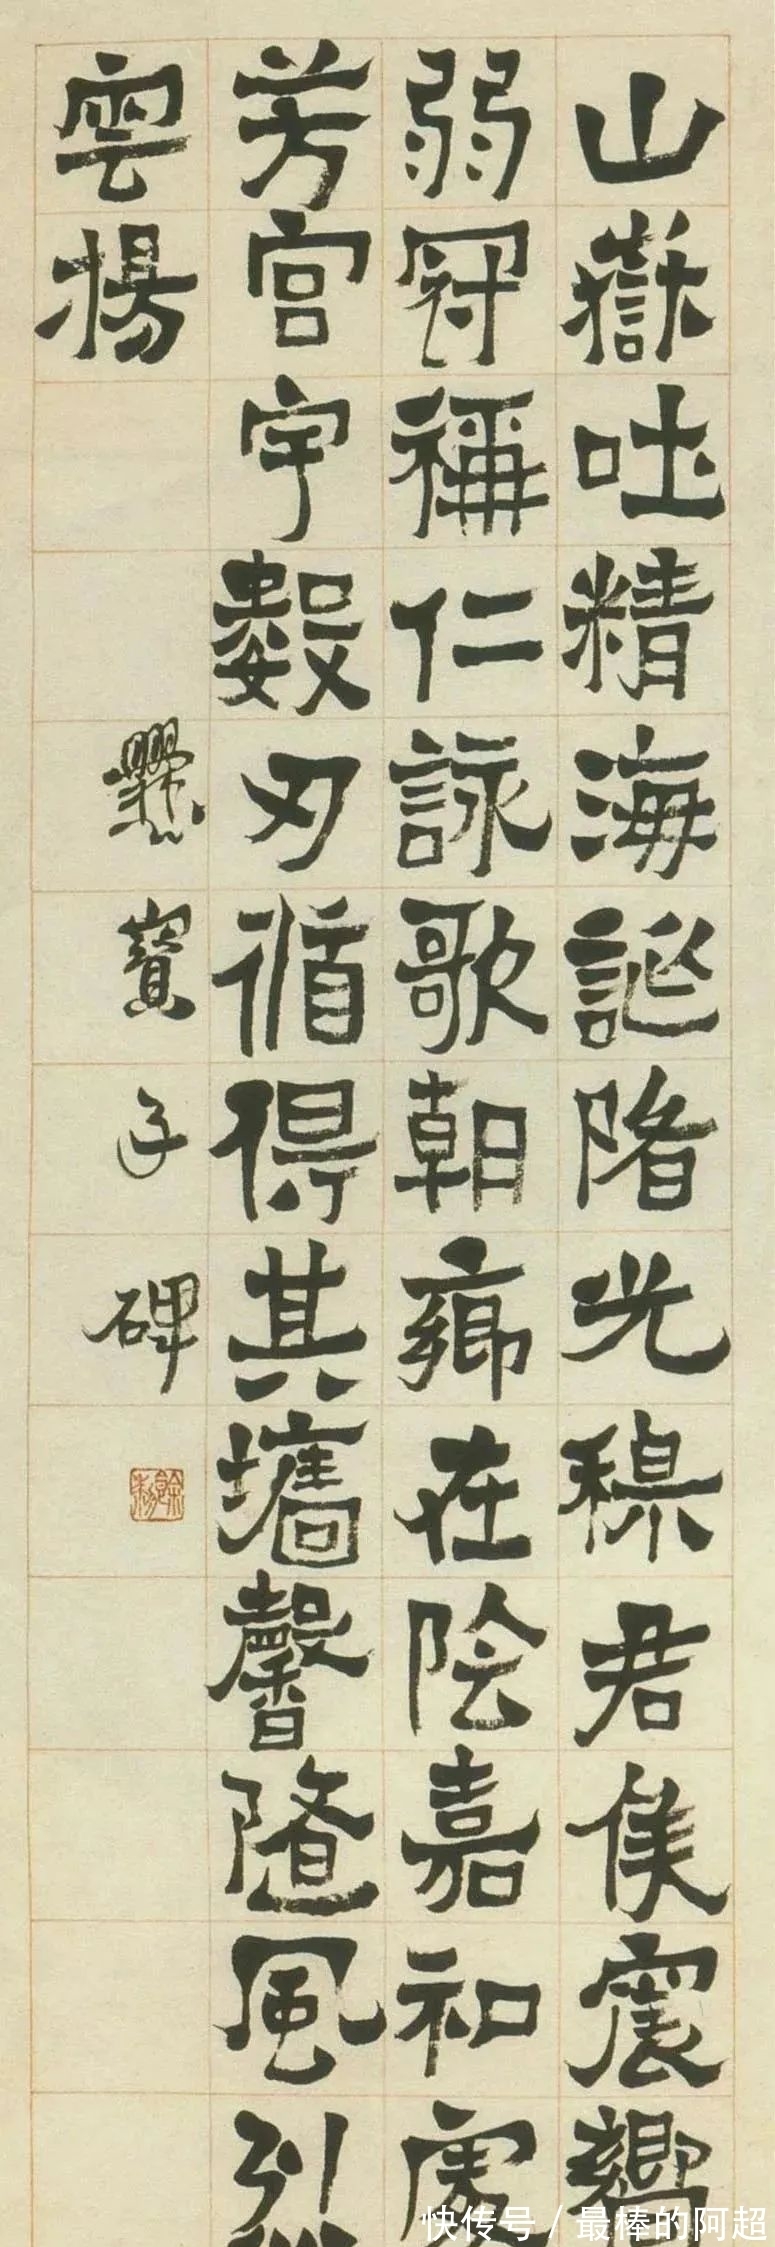 山嶽吐精海誕陼光穆君侯震響
弱冠稱仁詠歌朝鄉在陰嘉和處
芳宮宇數刃循得其墻馨隨風列
雲揚
爨寶子碑
快传号 / 最棒的阿超